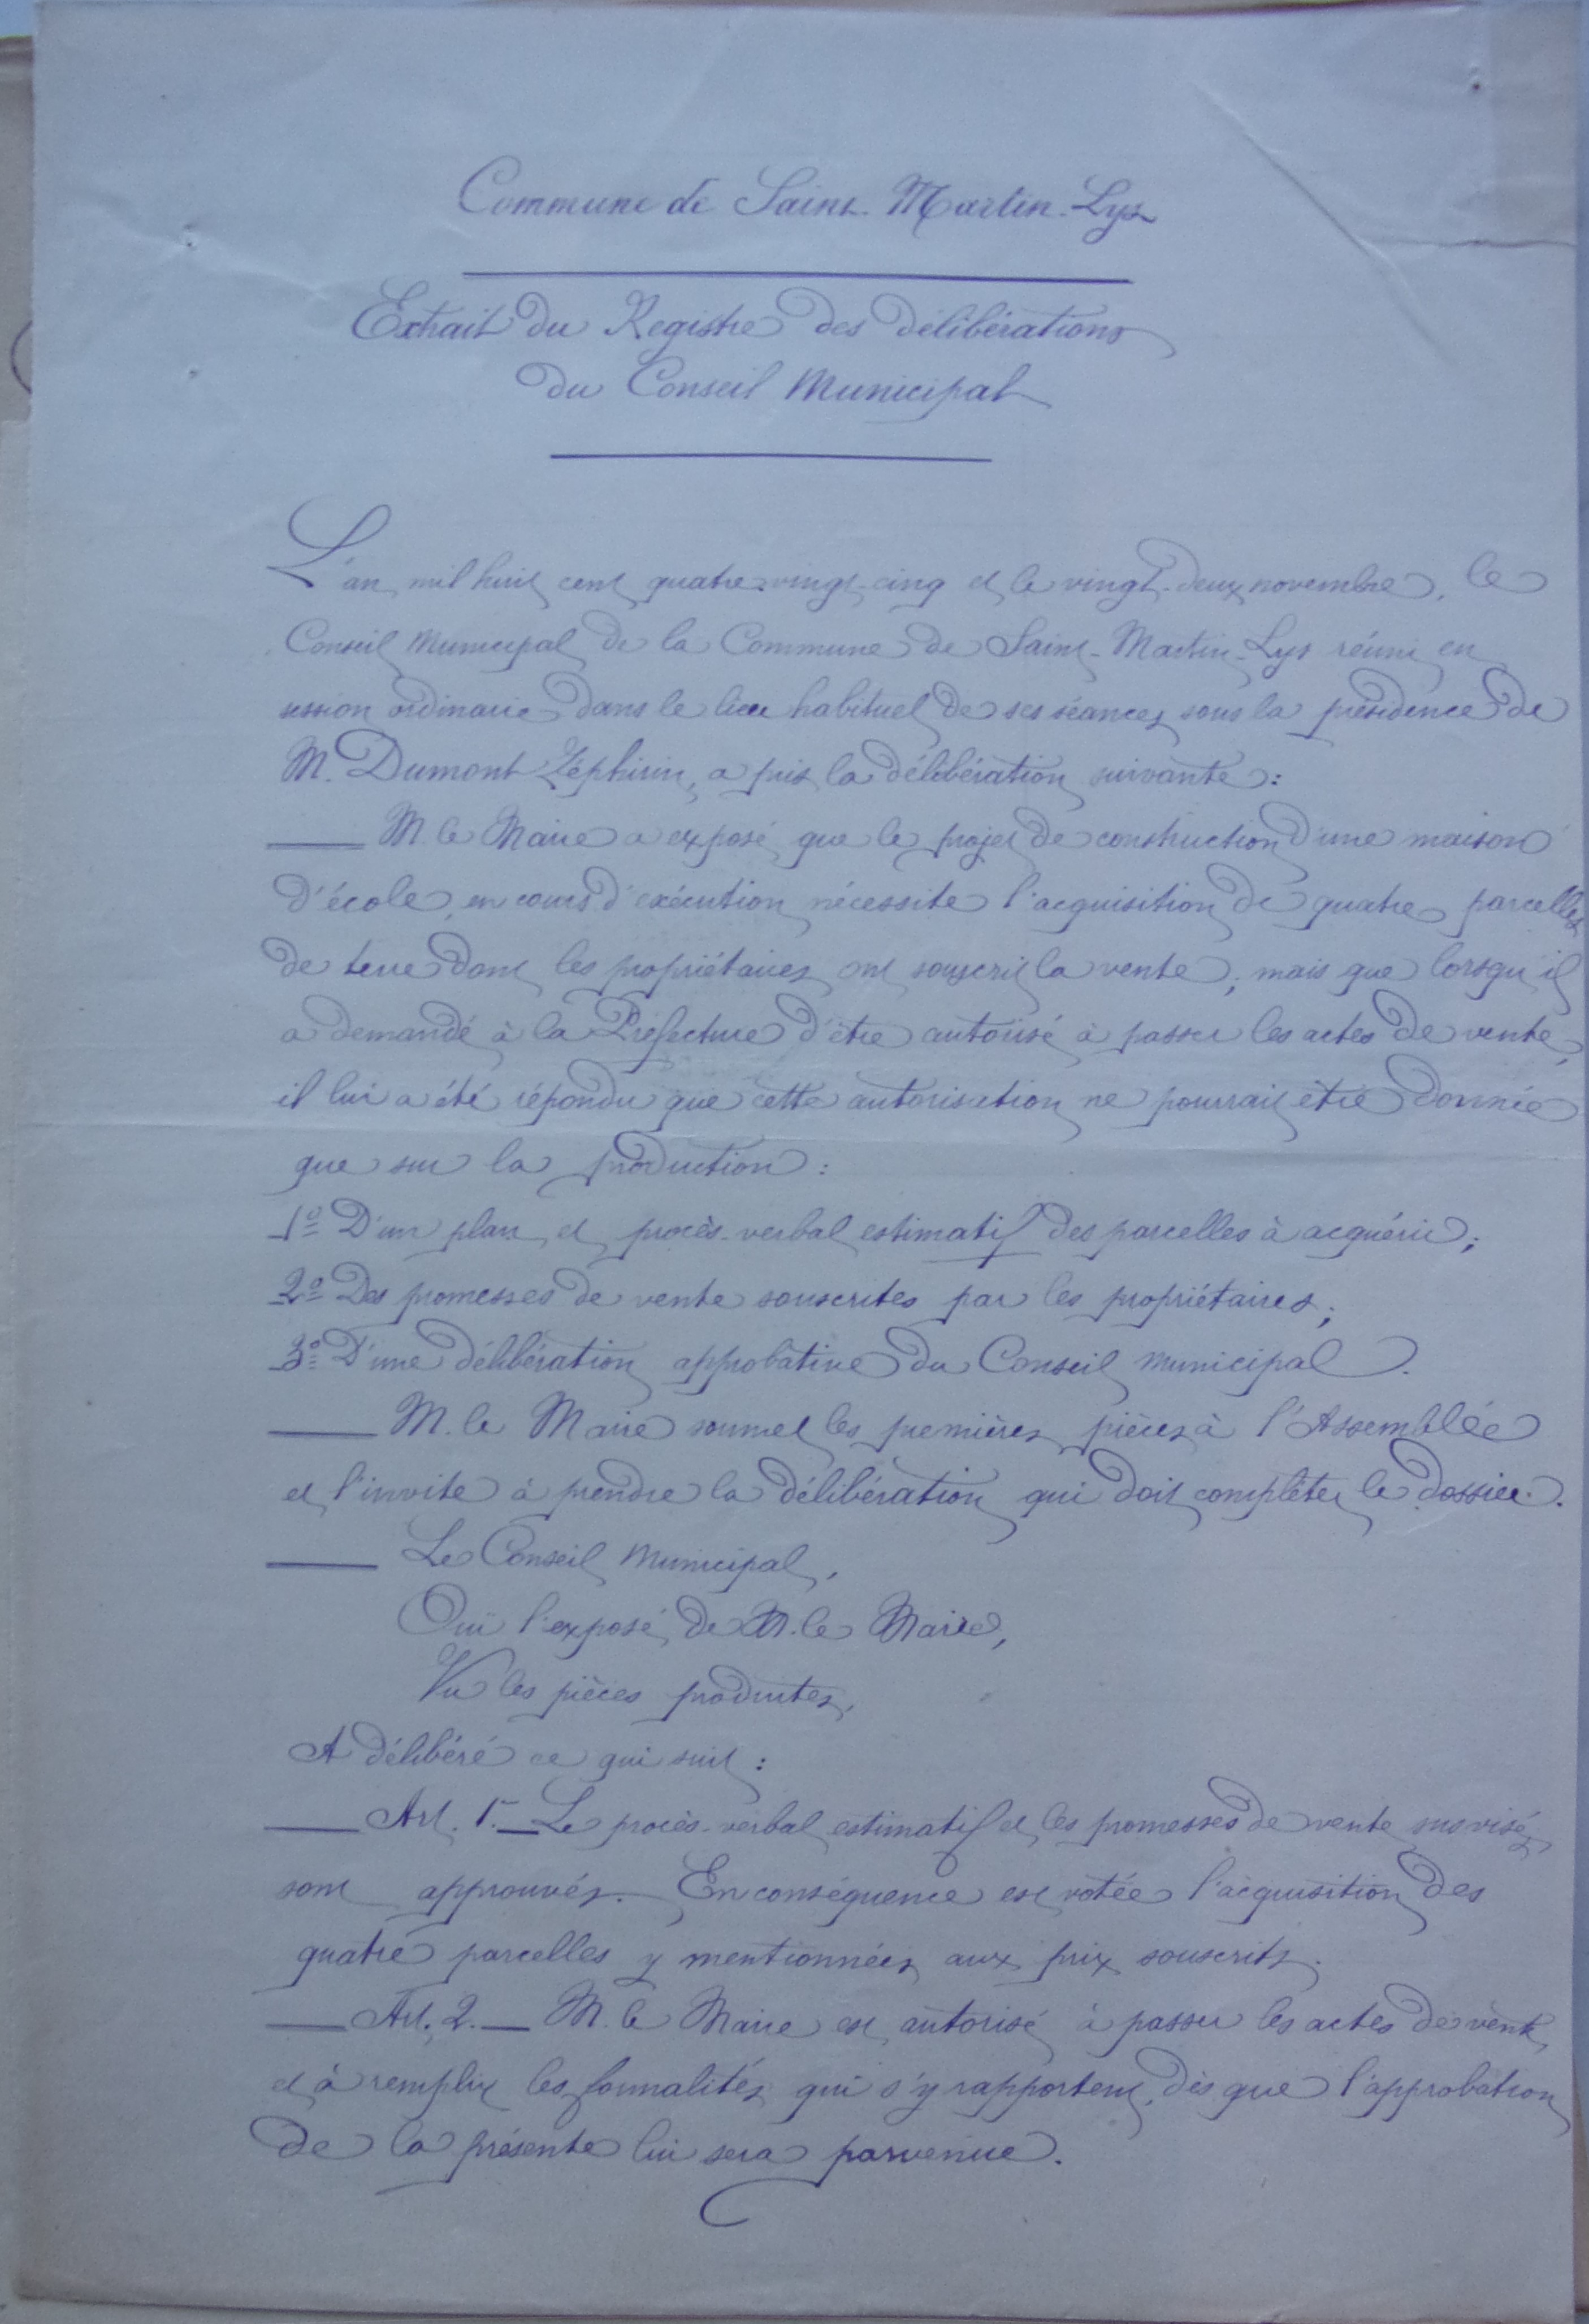 Commune de Saint-Martin-Lys
Extrait du Registre des délibérations
du Conseil Municipal
L'an mil huit cent quatre-vingt-cinq et le vingt-deux novembre, le
Conseil Municipal de la Commune de Saint-Martin-Lys réuni en
session ordinaire dans le lieu habituel de ses séances sous la présidence de
M. Dumont Zéphirin, a pris la délibération suivante :
— M. le Maire a exposé que le projet de construction d'une maison
d'école, en cours d'exécution nécessite l'acquisition de quatre parcelles
de terre dont les propriétaires ont souscrit la vente ; mais que lorsqu'il
a demandé à la Préfecture d'être autorisé à passer les actes de vente,
il lui a été répondu que cette autorisation ne pourrait être donnée
que sur la production :
1º D'un plan et procès-verbal estimatif des parcelles à acquérir ;
2º Des promesses de vente souscrites par les propriétaires ;
3º D'une délibération approbative du Conseil municipal.
— M. le Maire soumet les premières pièces à l'Assemblée
et l'invite à prendre la délibération qui doit compléter le dossier.
— Le Conseil Municipal,
Ouï l'exposé de M. le Maire,
Vu les pièces produites,
A délibéré ce qui suit :
— Art. 1er — Le procès-verbal estimatif et les promesses de vente susvisés
sont approuvés. En conséquence est votée l'acquisition des
quatre parcelles y mentionnées aux prix souscrits.
— Art. 2. — M. le Maire est autorisé à passer les actes de vente
et à remplir les formalités qui s'y rapportent, dès que l'approbation
de la présente lui sera parvenue.